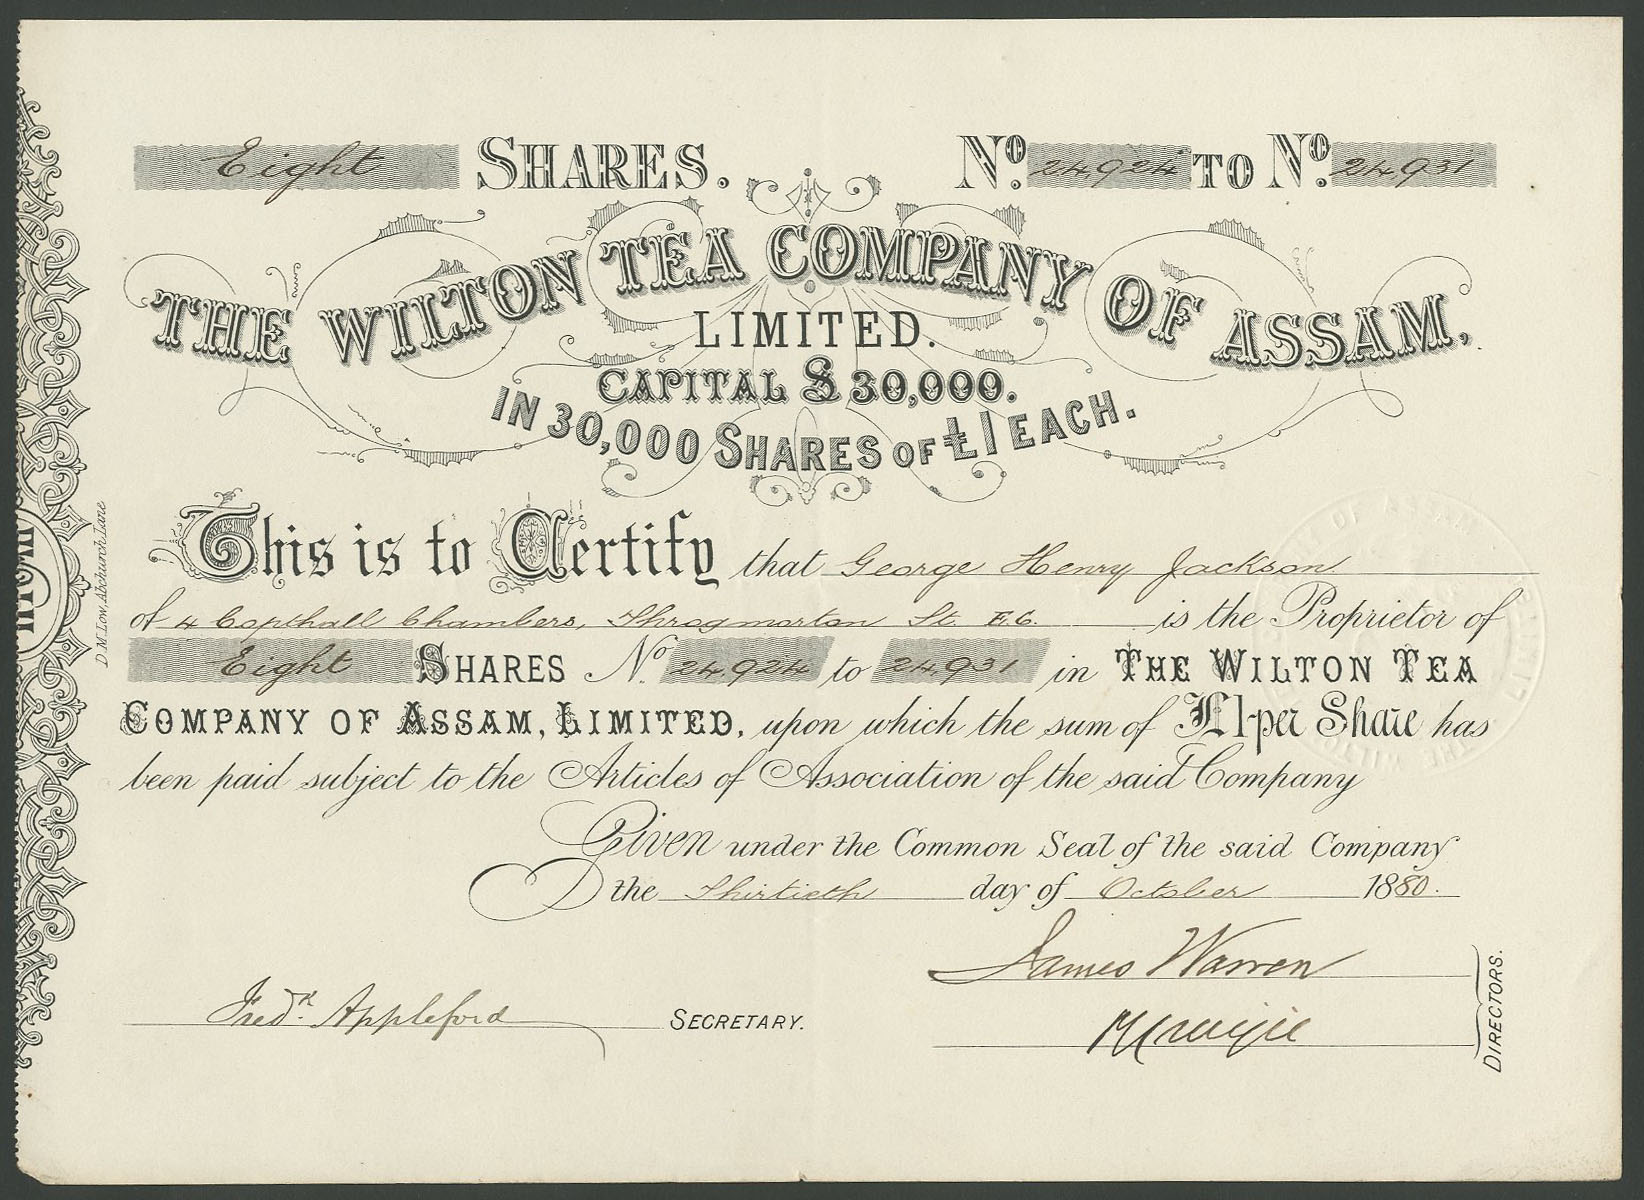 Eight SHARES. No. 24,924 TO No. 24,931
THE WILTON TEA COMPANY OF ASSAM,
LIMITED.
CAPITAL £30,000.
IN 30,000 SHARES OF £1 EACH.
This is to Certify that George Henry Jackson
of 4 Copthall Chambers, Throgmorton St. E.C. is the Proprietor of
Eight SHARES No. 24,924 to 24,931 in THE WILTON TEA
COMPANY OF ASSAM, LIMITED, upon which the sum of £1 per Share has
been paid subject to the Articles of Association of the said Company
Given under the Common Seal of the said Company
the Thirtieth day of October 1880.
James Warren
Fredk. Appleford SECRETARY.
DIRECTORS.
D M Low, Abchurch Lane
THE WILTON TEA COMPANY OF ASSAM LIMITED